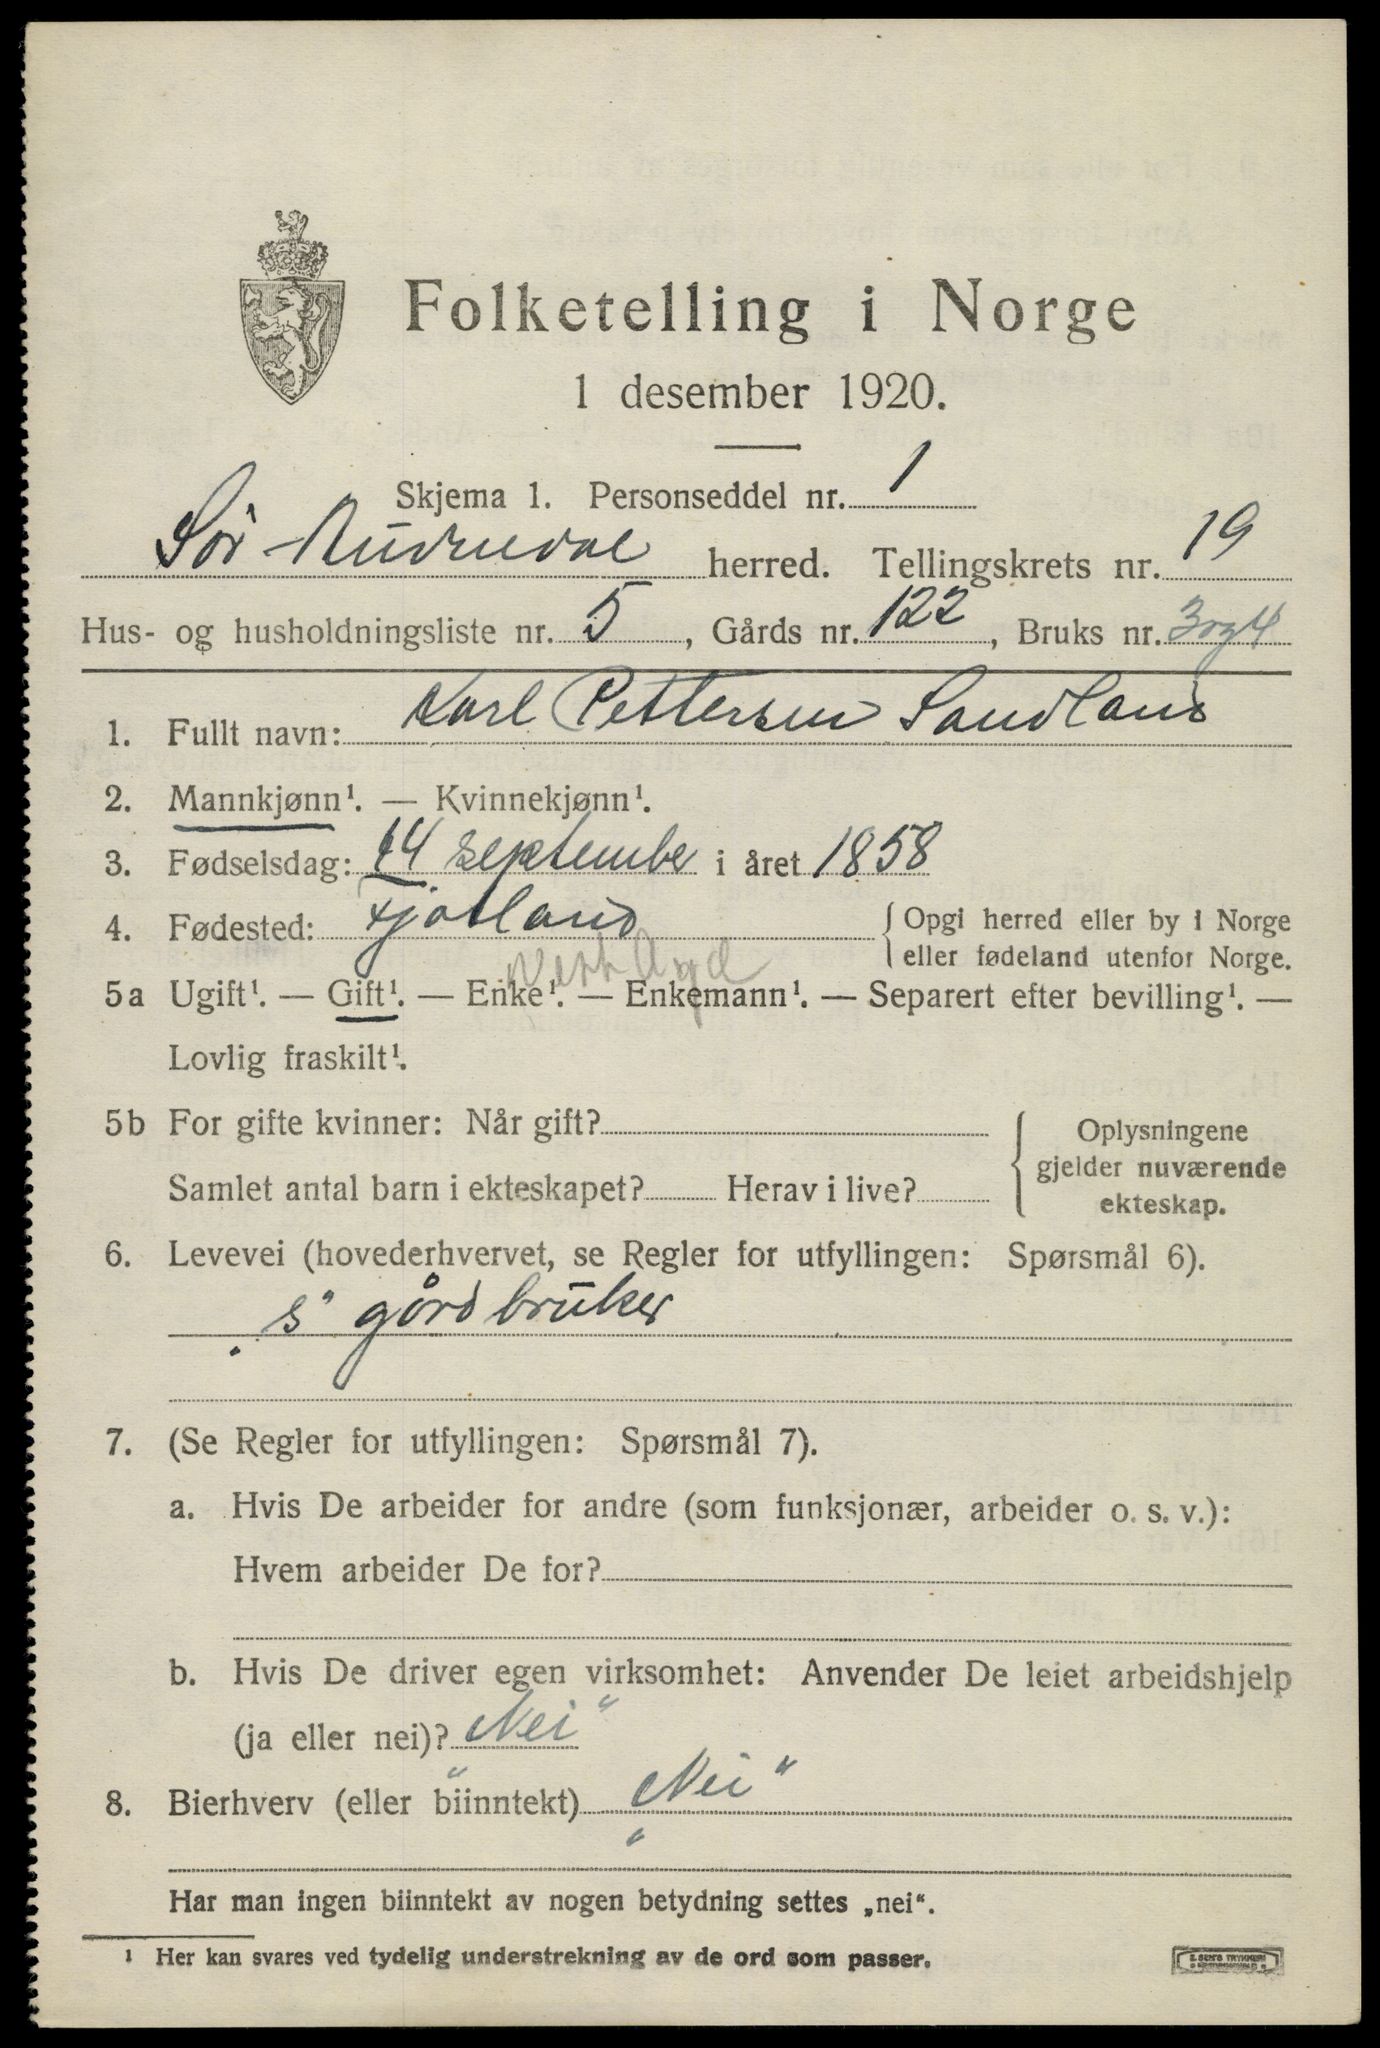 Folketelling i Norge
1 desember 1920.
Skjema 1. Personseddel nr. 1
Sør-Audnedal herred. Tellingskrets nr. 19
Hus- og husholdningsliste nr. 5, Gårds nr. 122, Bruks nr. 3 og 4
1. Fullt navn: Karl Pettersen Sandland
2. Mannkjønn¹. — Kvinnekjønn¹.
3. Fødselsdag: 14 september i året 1858
4. Fødested: Fjotland { Opgi herred eller by i Norge
eller fødeland utenfor Norge.
Vest Agd
5a Ugift¹. — Gift¹. — Enke¹. — Enkemann¹. — Separert efter bevilling¹. —
Lovlig fraskilt¹.
5b For gifte kvinner: Når gift?
Samlet antal barn i ekteskapet? Herav i live?
{ Oplysningene
gjelder nuværende
ekteskap.
6. Levevei (hovederhvervet, se Regler for utfyllingen: Spørsmål 6).
„s" gårdbruker
7. (Se Regler for utfyllingen: Spørsmål 7).
a. Hvis De arbeider for andre (som funksjonær, arbeider o. s. v.):
Hvem arbeider De for?
b. Hvis De driver egen virksomhet: Anvender De leiet arbeidshjelp
(ja eller nei)? „Nei"
8. Bierhverv (eller biinntekt) „Nei"
Har man ingen biinntekt av nogen betydning settes „nei".
¹ Her kan svares ved tydelig understrekning av de ord som passer.